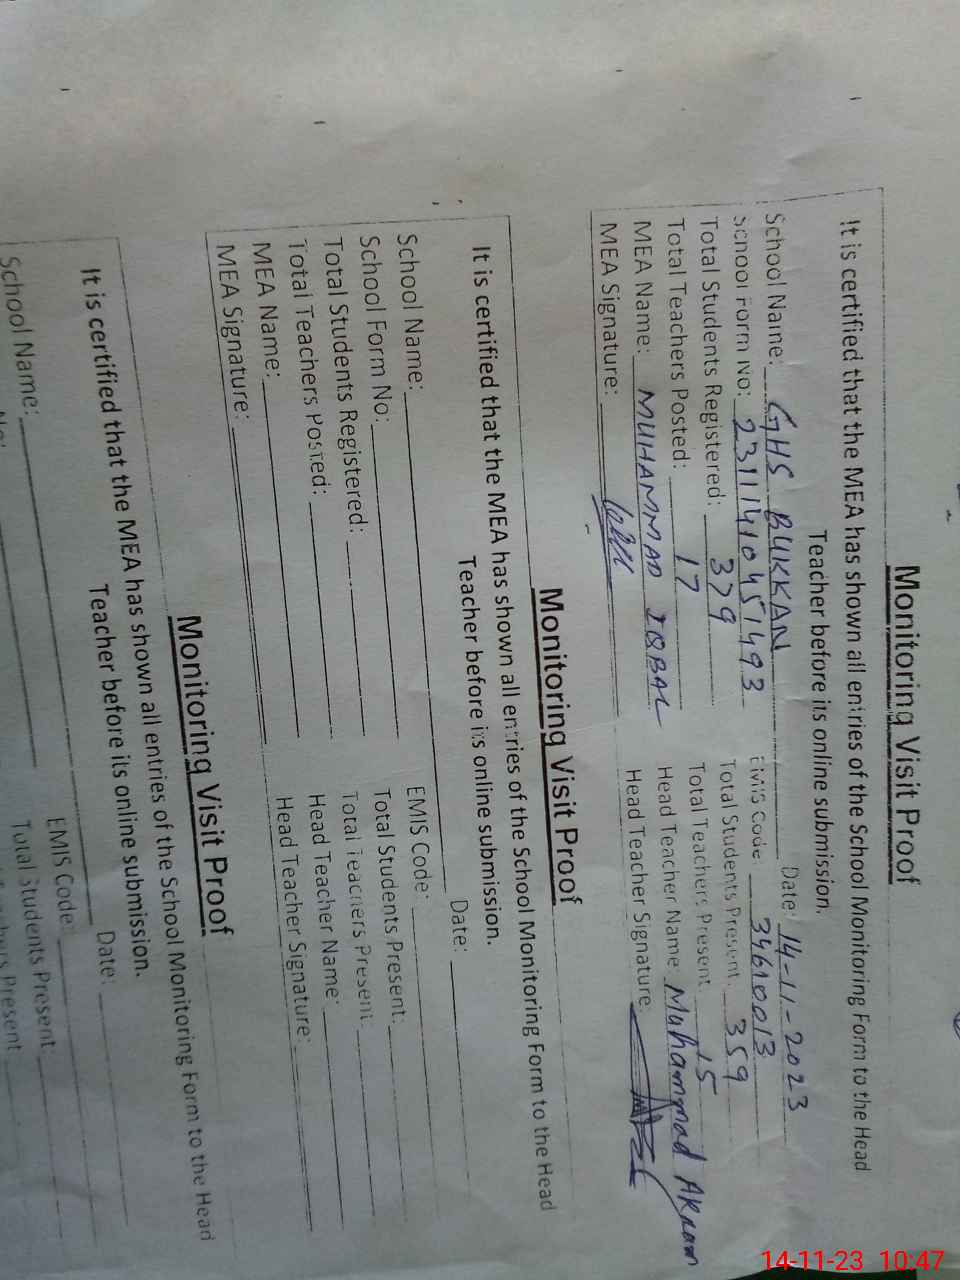 Monitoring Visit Proof
It is certified that the MEA has shown all entries of the School Monitoring Form to the Head
Teacher before its online submission.
School Name: GHS BUKKAN Date: 14-11-2023
School Form No: 23111410451493 EMIS Code 34610013
Total Students Registered: 379 Total Students Present 359
Total Teachers Posted: 17 Total Teachers Present 15
MEA Name: MUHAMMAD IQBAL Head Teacher Name Muhammad Akram
MEA Signature: Head Teacher Signature
Monitoring Visit Proof
It is certified that the MEA has shown all entries of the School Monitoring Form to the Head
Teacher before its online submission.
School Name: Date:
School Form No: EMIS Code:
Total Students Registered: Total Students Present:
Total Teachers Posted: Total Teachers Present
MEA Name: Head Teacher Name:
MEA Signature: Head Teacher Signature:
Monitoring Visit Proof
It is certified that the MEA has shown all entries of the School Monitoring Form to the Head
Teacher before its online submission.
School Name: Date:
No: EMIS Code:
Total Students Present
Present
14-11-23 10:47